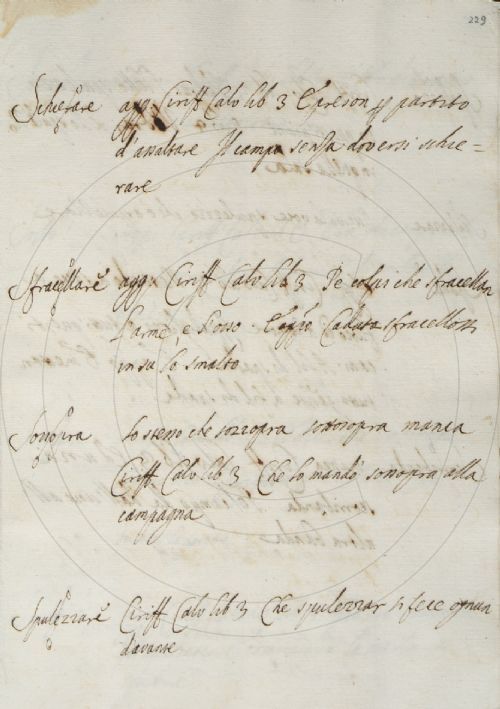 229
Schierare agg: Ciriff Calv lib 3 E preson p partito
d'assaltare Il campo senza doversi schie=
rare
Sfracellare agg: Ciriff Calv lib 3 Pe colpi che sfracellan
l'arme, e l'osso Caduta sfracellossi
in su lo smalto
Sonopra lo stesso che sozzopra sottosopra manca
Ciriff Calv lib 3 Che lo mandò sonopra alla
campagna
Spulezzare Ciriff Calv lib 3 Che spulezzar si fece ognun
davante